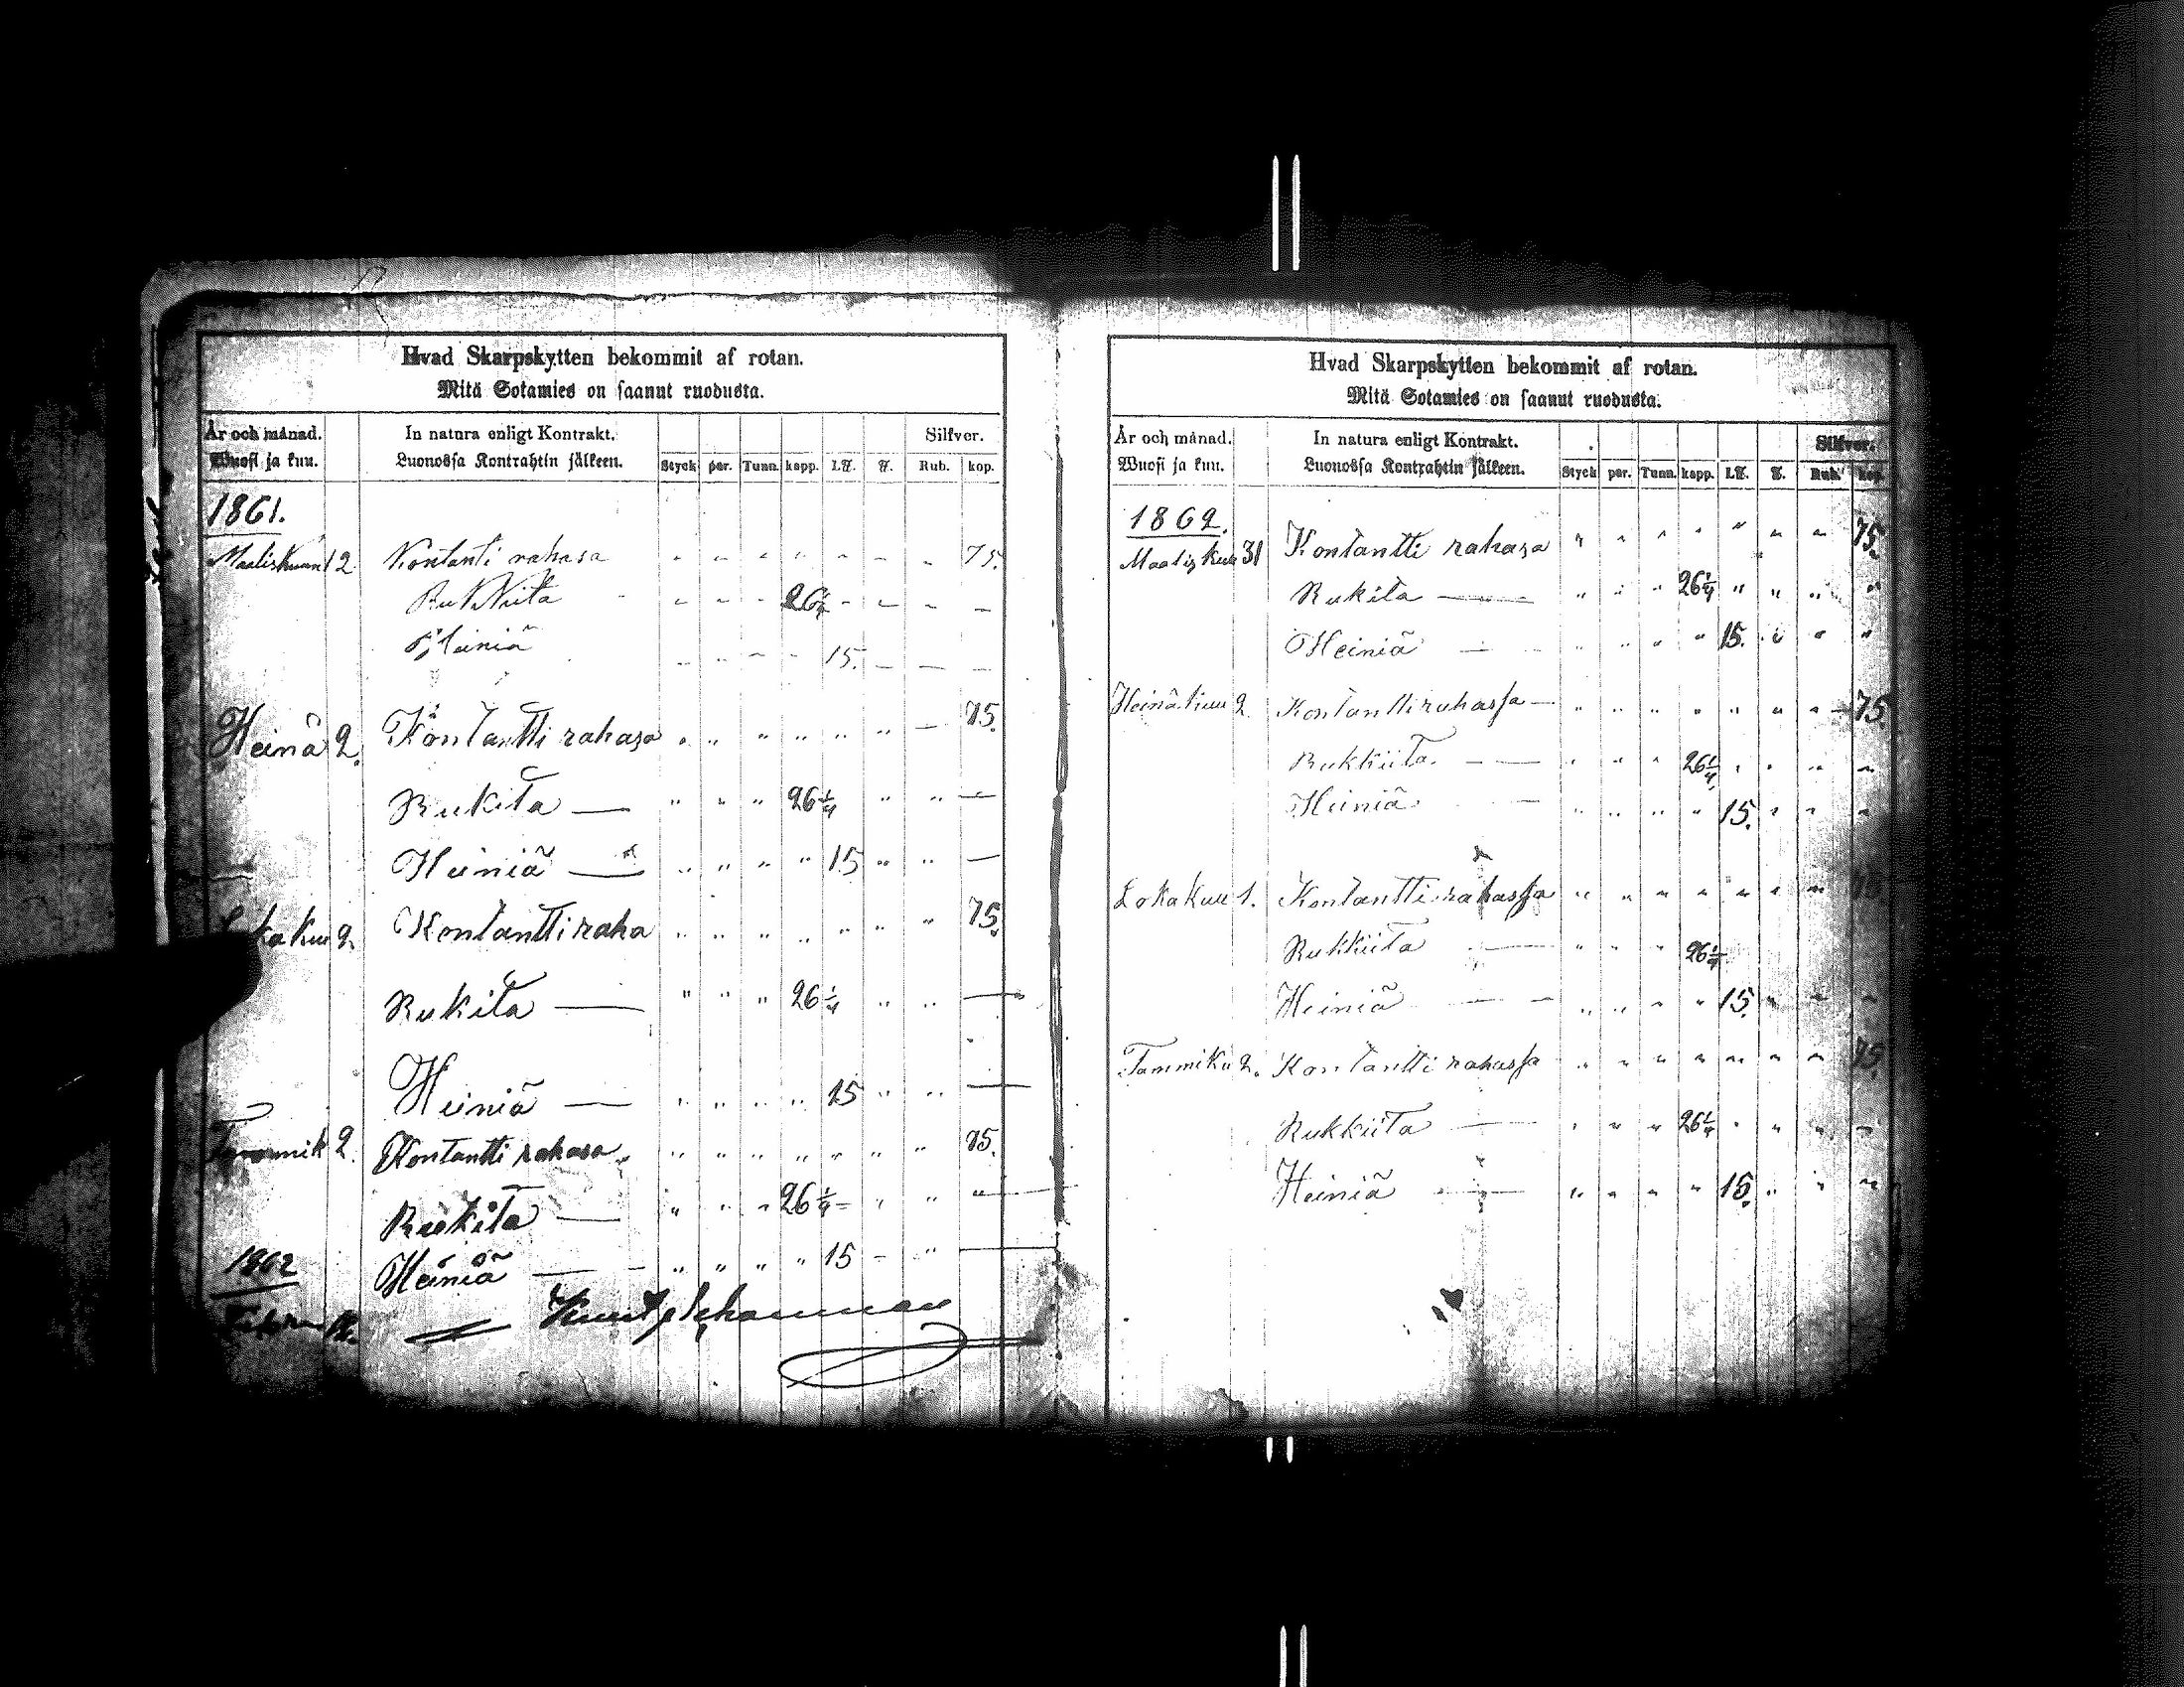 Hvad Skarpskytten bekommit af rotan.
Mitä Sotamies on saanut ruodusta.
År och månad. In natura enligt Kontrakt. Silfver.
Wuosi ja kuu. Luonossa Kontrahtin jälkeen. Styck par. Tunn. kapp. L℔. ℔. Rub. kop.
1861.
Maaliskuun 2 Kontanti rahasa " " " " " " " 75.
Rukkiita " " " 26 1/4 " " " "
Heiniä " " " " 15. " " "
Heinä 2. Kontantti rahasa " " " " " " " 75.
Rukita — " " " 26 1/4 " " —
Heiniä — " " " " 15 " " —
kakuu 2. Kontantti raha " " " " " " " 75.
Rukita — " " " 26 1/4 " " —
Heiniä — " " " " 15 " " —
Tammik 2. Kontantti rahasa " " " " " " " 75.
Rukita — " " " 26 1/4 " " "
Heiniä — " " " " 15 " "
1862
Hvad Skarpskytten bekommit af rotan.
Mitä Sotamies on saanut ruodusta.
År och månad. In natura enligt Kontrakt. Silfver.
Wuosi ja kuu. Luonossa Kontrahtin jälkeen. Styck par. Tunn. kapp. L℔. ℔. Rub. kop.
1862.
Maaliskuu 31 Kontantti rahasa " " " " " " " 75.
Rukita — " " " 26 1/4 " " " "
Heiniä — " " " " 15. " " "
Heinäkuu 2. Kontantti rahassa — " " " " " " " 75
Rukkiita. — " " " 26 1/4 " " " "
Heiniä — " " " " 15. " " "
Lokakuu 1. Kontantti rahassa " " " " " " " 75.
Rukkiita — " " " 26 1/4
Heiniä — " " " " 15. " " "
Tammiku 2. Kontantti rahassa " " " " " " " 75.
Rukkiita — " " " 26 1/4 " " " "
Heiniä — " " " " 15. " " "